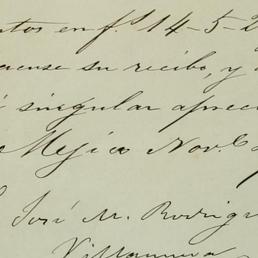 ntos en f.s 14-5-2
su recibo, y
singular aprec
Mejico Nov.e
José M. Rodrig
Villanueva